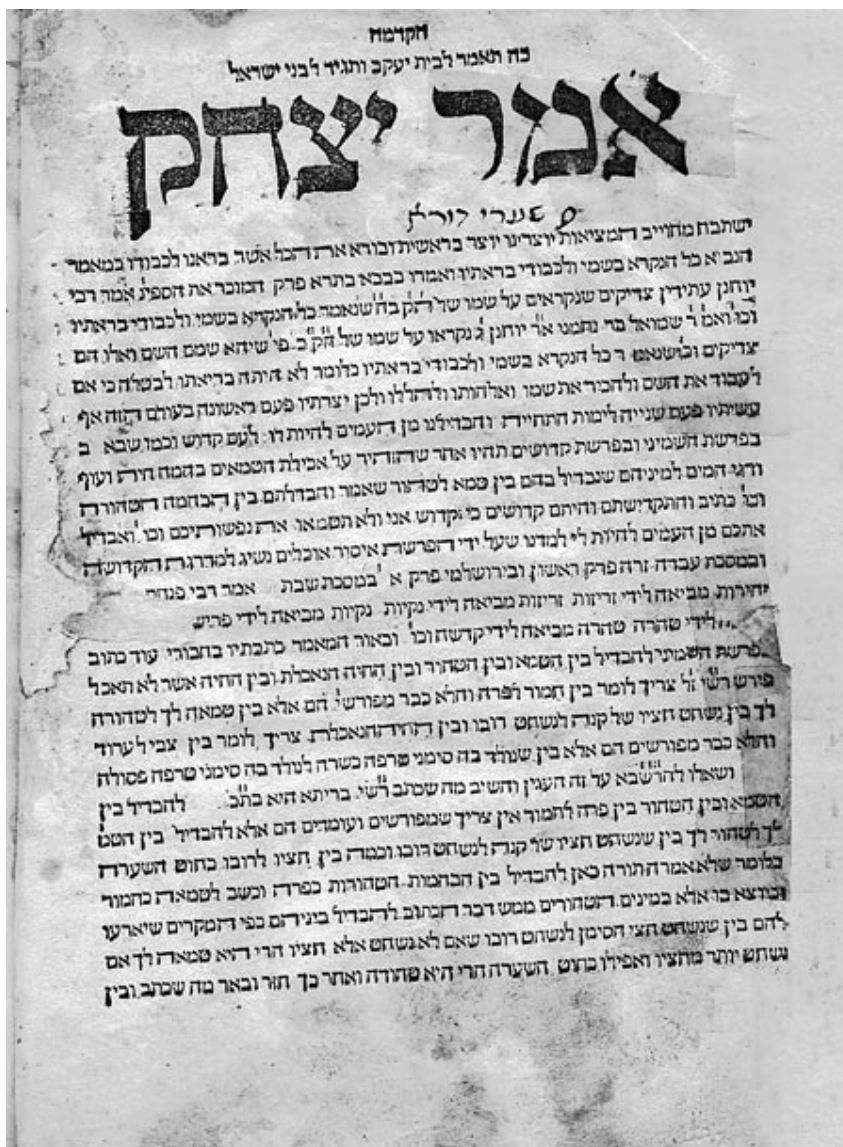 הקדמה
כה תאמר לבית יעקב ותגיד לבני ישראל
אמר יצחק
שערי דורא
ישתבח מחוייב המציאות יוצרינו יוצר בראשית ובורא את הכל אשר בראנו לכבודו במאמר
הנביא כל הנקרא בשמי ולכבודי בראתיו ואמרו בבבא בתרא פרק המוכר את הספינ אמר רבי
יוחנן עתידין צדיקים שנקראים על שמו של הק בה שנאמר כל הנקרא בשמי ולכבודי בראתיו
וכו ואמר שמואל בר נחמני אר יוחנן ג נקראו על שמו של הק ב פי שיהא שמם השם ואלו הם
צדיקים וכו שנאמר כל הנקרא בשמי ולכבודי בראתיו כלומר לא היתה בריאתו לבטלה כי אם
לעבוד את השם ולהכיר את שמו ואלהותו ולהללו ולכן יצרתיו פעם ראשונה בעולם הזה אף
עשיתיו פעם שנייה לימות התחייה והבדילנו מן העמים להיות לו לעם קדוש וכמו שבא ב
בפרשת השמיני ובפרשת קדושים תהיו אחר שהזהיר על אכילת הטמאים בהמה חיה ועוף
ודגי המים למיניהם שנבדיל בהם בין טמא לטהור שאמר והבדלתם בין הבהמה הטהורה
וכו כתיב והתקדישתם והיתם קדושים כי קדוש אני ולא תטמאו את נפשותיכם וכו ואבדיל
אתכם מן העמים להיות לי למדנו שעל ידי הפרשת איסור אוכלים נשיג למדרגת הקדושה
ובמסכת עבודה זרה פרק ראשון ובירושלמי פרק א במסכת שבת אמר רבי פנחס
זהירות מביאה לידי זריזות זריזות מביאה לידי נקיות נקיות מביאה לידי פריש
לידי טהרה טהרה מביאה לידי קדשה וכו ובאור המאמר כתבתיו בחבורי עוד כתוב
בפרשת השמיני להבדיל בין הטמא ובין הטהור ובין החיה הנאכלת ובין החיה אשר לא תאכל
פירש רשי זל צריך לומר בין חמור לפרה והלא כבר מפורשי הם אלא בין טמאה לך לטהורה
לך בין נשחט חציו של קנה לנשחט רובו ובין החיה הנאכלת צריך לומר בין צבי לערוד
והלא כבר מפורשים הם אלא בין שנולד בה סימני טרפה כשרה לנולד בה סימני טרפה פסולה
ושאלו להרשבא על זה הענין והשיב מה שכתב רשי בריתא היא בתכ להבדיל בין
הטמא ובין הטהור בין פרה לחמור אין צריך שמפורשים ועומדים הם אלא להבדיל בין הטמ
לך לטהור לך בין שנשחט חציו של קנה לנשחט רובו וכמה בין חציו לרובו כחוט השערה
כלומר שלא אמרה תורה כאן להבדיל בין הבהמות הטהורות כפרה וכשב לטמאה כחמור
וכיוצא בו אלא במינים הטהורים ממש דבר הכתוב להבדיל ביניהם כפי המקרים שיארעו
להם בין שנשחט חצי הסימן לנשחט רובו שאם לא נשחט אלא חציו הרי היא טמאה לך אם
נשחט יותר מחציו ואפילו כחוט השערה הרי היא טהורה ואחר כך חזר ובאר מה שכתב ובין